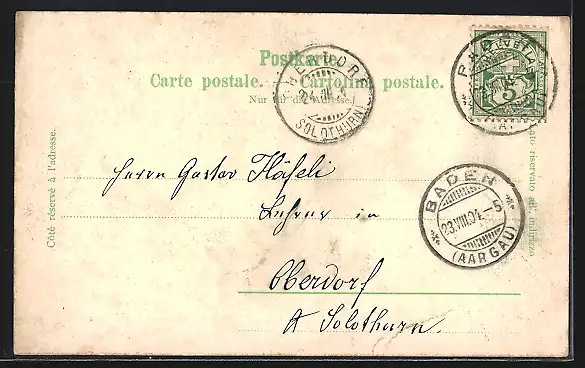 Postkarte.
Carte postale. Cartolina postale.
Nur für die Adresse.
HELVETIA
5
BADEN
23.VIII.04.-5
(AARGAU)
(SOLOTHURN)
Côté réservé à l'adresse.
Lato riservato all'indirizzo
Herrn Gustav Häfeli
Lehrer in
Oberdorf
Kt Solothurn.